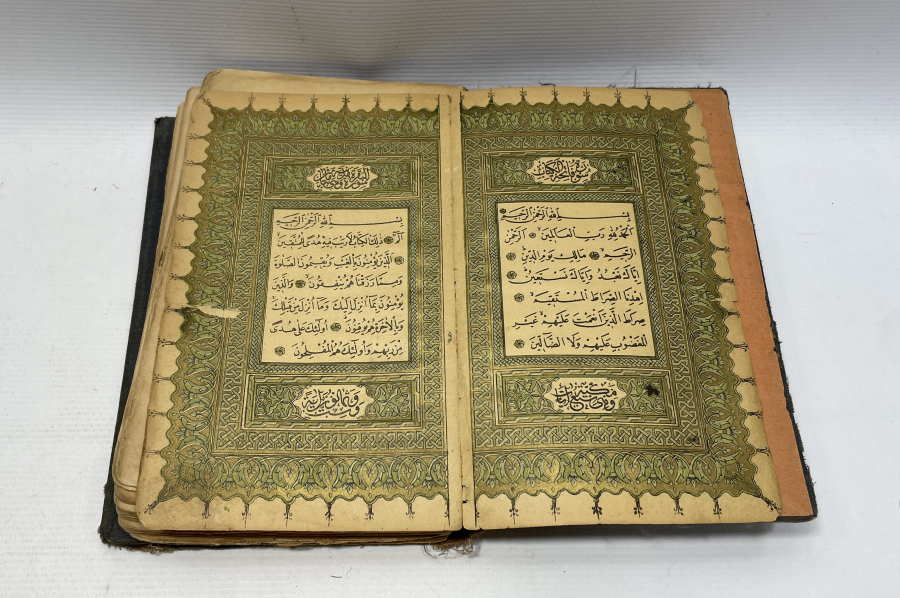 سورة فاتحة الكتاب
بِسْمِ اللهِ الرَّحْمٰنِ الرَّحِيمِ
اَلْحَمْدُ لِلّٰهِ رَبِّ الْعَالَمِينَ ۝ اَلرَّحْمٰنِ
الرَّحِيمِ ۝ مَالِكِ يَوْمِ الدِّينِ ۝
اِيَّاكَ نَعْبُدُ وَاِيَّاكَ نَسْتَعِينُ ۝
اِهْدِنَا الصِّرَاطَ الْمُسْتَقِيمَ ۝
صِرَاطَ الَّذِينَ اَنْعَمْتَ عَلَيْهِمْ غَيْرِ
الْمَغْضُوبِ عَلَيْهِمْ وَلَا الضَّالِّينَ
مكية وهي سبع آيات
سورة البقرة
بِسْمِ اللهِ الرَّحْمٰنِ الرَّحِيمِ
الٓمٓ ۝ ذٰلِكَ الْكِتَابُ لَا رَيْبَ فِيهِ هُدًى لِلْمُتَّقِينَ
الَّذِينَ يُؤْمِنُونَ بِالْغَيْبِ وَيُقِيمُونَ الصَّلٰوةَ
وَمِمَّا رَزَقْنَاهُمْ يُنْفِقُونَ ۝ وَالَّذِينَ
يُؤْمِنُونَ بِمَا اُنْزِلَ اِلَيْكَ وَمَا اُنْزِلَ مِنْ قَبْلِكَ
وَبِالْاٰخِرَةِ هُمْ يُوقِنُونَ ۝ اُولٰئِكَ عَلٰى هُدًى
مِنْ رَبِّهِمْ وَاُولٰئِكَ هُمُ الْمُفْلِحُونَ ۝
وثمانون آية